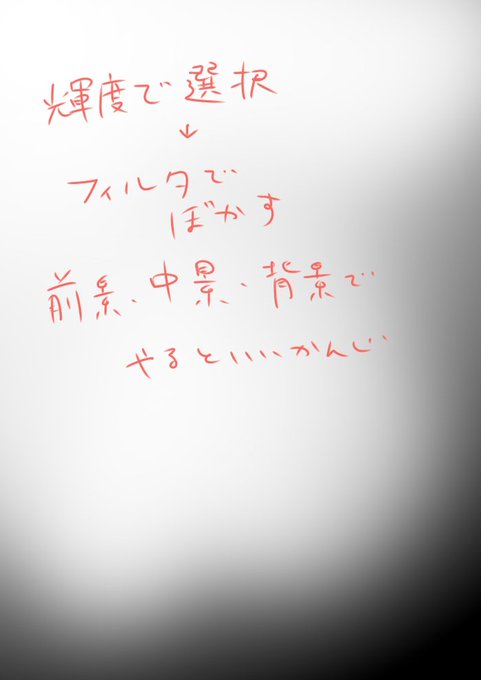 輝度で選択
↓
フィルタで
ぼかす
前景、中景、背景で
やるといいかんじ